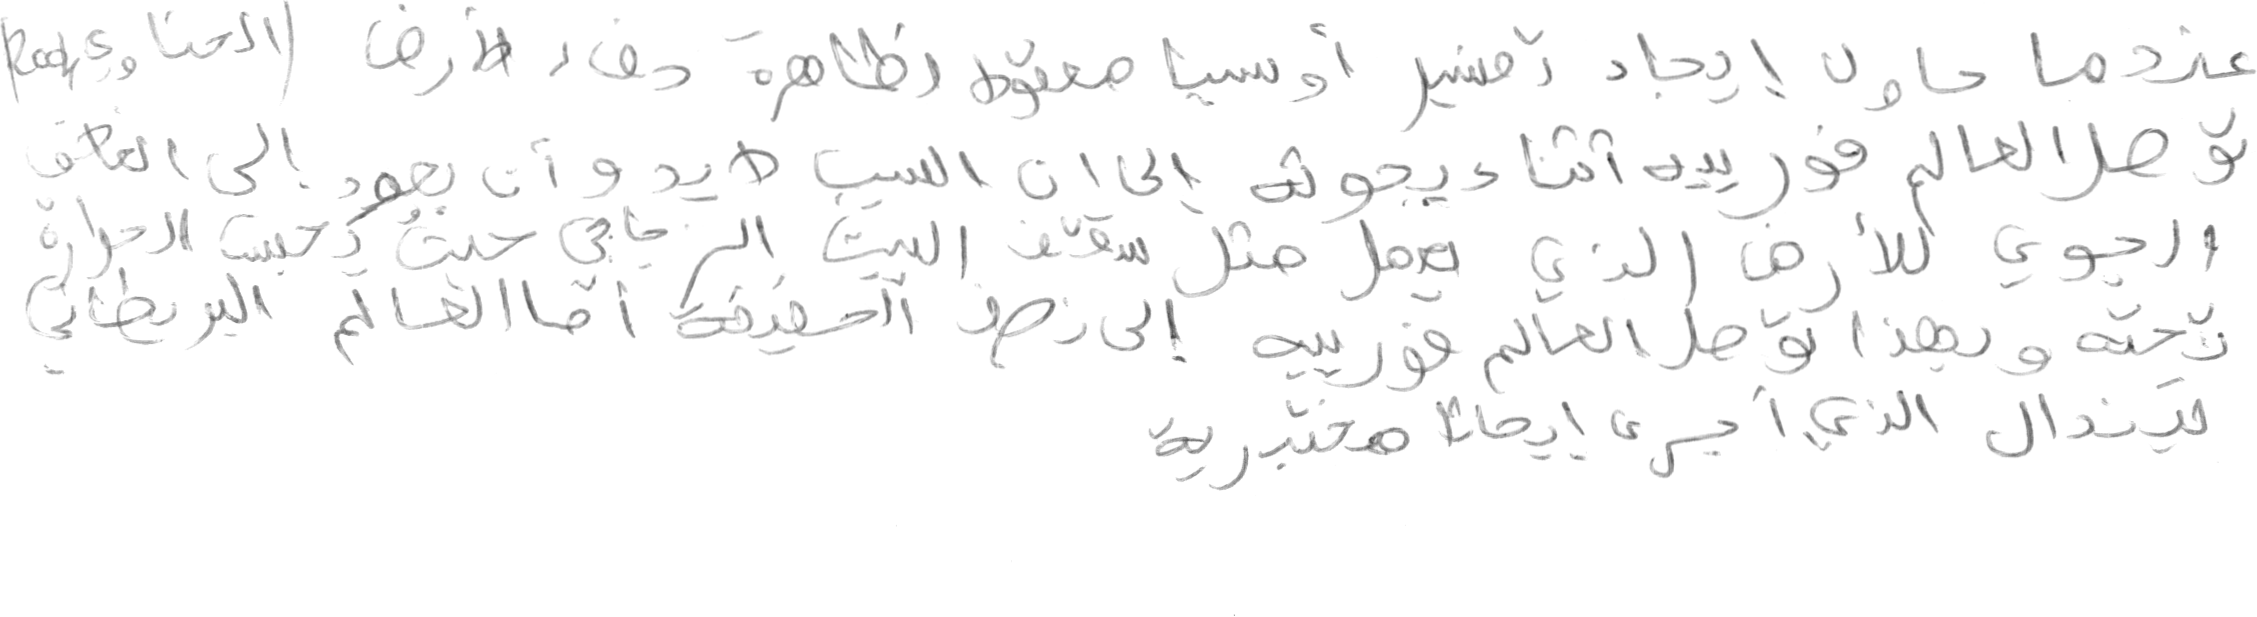 عندما حاول إيجاد تفسير أو سببا معقولا لظاهرة دفء الأرض (الحناوي
توصل العالم فورييه أثناء بحوثه إلى ان السبب لابد وأن يعود إلى الغلاف
الجوي للأرض الذي يعمل مثل سقف البيت الزجاجي حيث تُحبس الحرارة
تحته وبهذا توصل العالم فورييه إلى نصف الحقيقة أما العالم البريطاني
تيندال الذي أجرى ابحاثا مختبرية